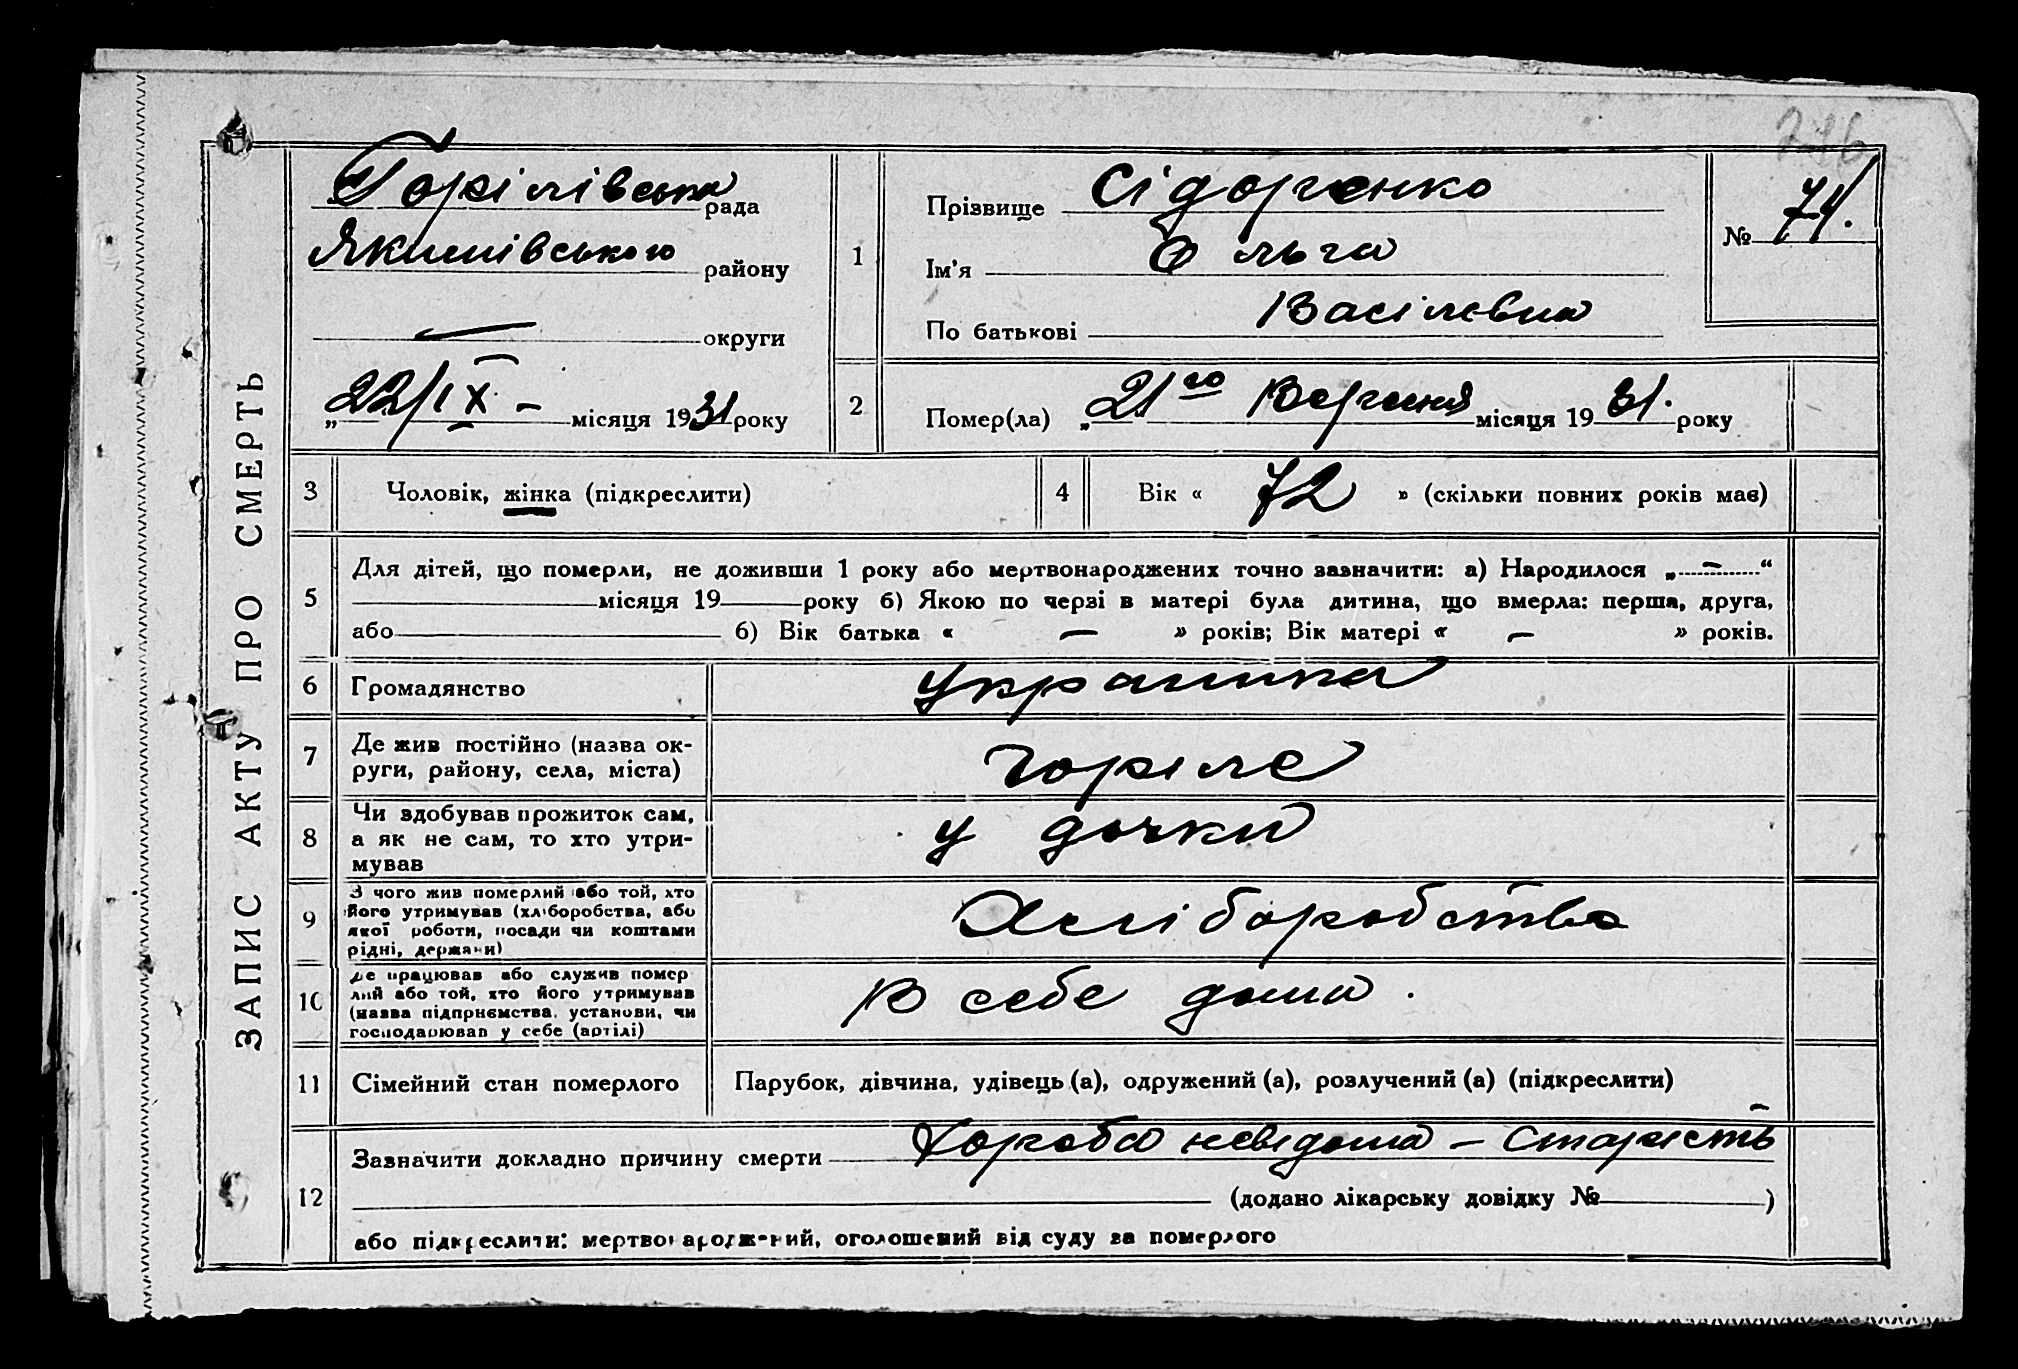 ЗАПИС АКТУ ПРО СМЕРТЬ
Горілівська рада
Якимівського району
— округи
„22/IX - місяця 1931 року
1
Прізвище Сідоренко
Ім’я Ольга
По батькові Василевна
№ 74.
2
Помер(ла) „21го Вересня місяця 1931. року
3 Чоловік, жінка (підкреслити)
4 Вік « 72 » (скільки повних років має)
5
Для дітей, що померли, не доживши 1 року або мертвонароджених точно зазначити: а) Народилося „ — “
місяця 19 року б) Якою по черзі в матері була дитина, що вмерла: перша, друга,
або б) Вік батька « — » років; Вік матері « — » років.
6 Громадянство
Украинка
7 Де жив постійно (назва ок-
руги, району, села, міста)
Горіле
8
Чи здобував прожиток сам,
а як не сам, то хто утри-
мував
у дочки
9
З чого жив померлий або той, хто
його утримував (хліборобства, або
якої роботи, посади чи коштами
рідні, держави)
Хліборобство
10
Де працював або служив помер
лий або той, хто його утримував
(назва підприємства, установи, чи
господарював у себе (артілі)
В себе дома.
11 Сімейний стан померлого
Парубок, дівчина, удівець (а), одружений (а), розлучений (а) (підкреслити)
12
Зазначити докладно причину смерти Хороба невідома – Старість
(додано лікарську довідку № )
або підкреслити: мертвонароджений, оголошений від суду за померлого